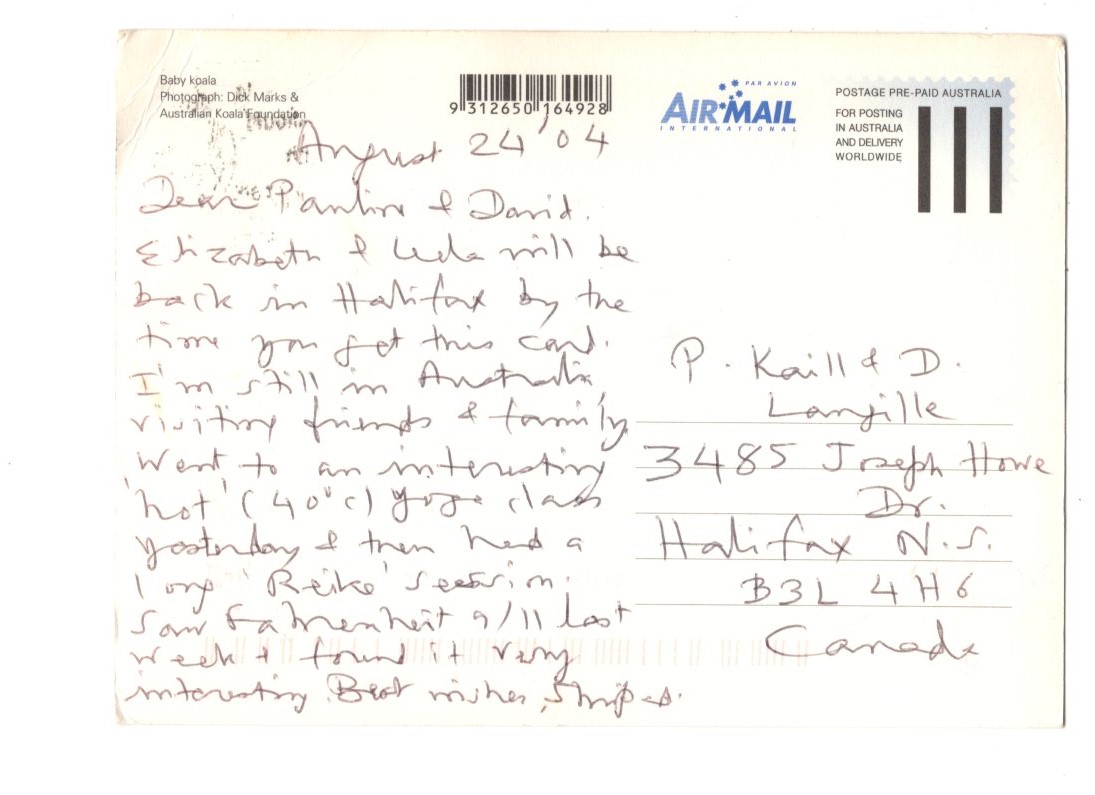 Baby koala
Photograph: Dick Marks &
Australian Koala Foundation
9 312650 164928
PAR AVION
AIR MAIL
INTERNATIONAL
POSTAGE PRE-PAID AUSTRALIA
FOR POSTING
IN AUSTRALIA
AND DELIVERY
WORLDWIDE
August 24 '04
Dear Pauline & David.
Elizabeth & will be
back in Halifax by the
time you get this card.
I'm still in Australia,
visiting friends & family.
Went to an interesting
'hot' (40°C) yoga class
yesterday & then had a
long 'Reike' session.
Saw Fahrenheit 9/11 last
week & found it very
interesting. Best wishes,
P. Kaill & D.
Langille
3485 Joseph Howe
Dr.
Halifax N.S.
B3L 4H6
Canada